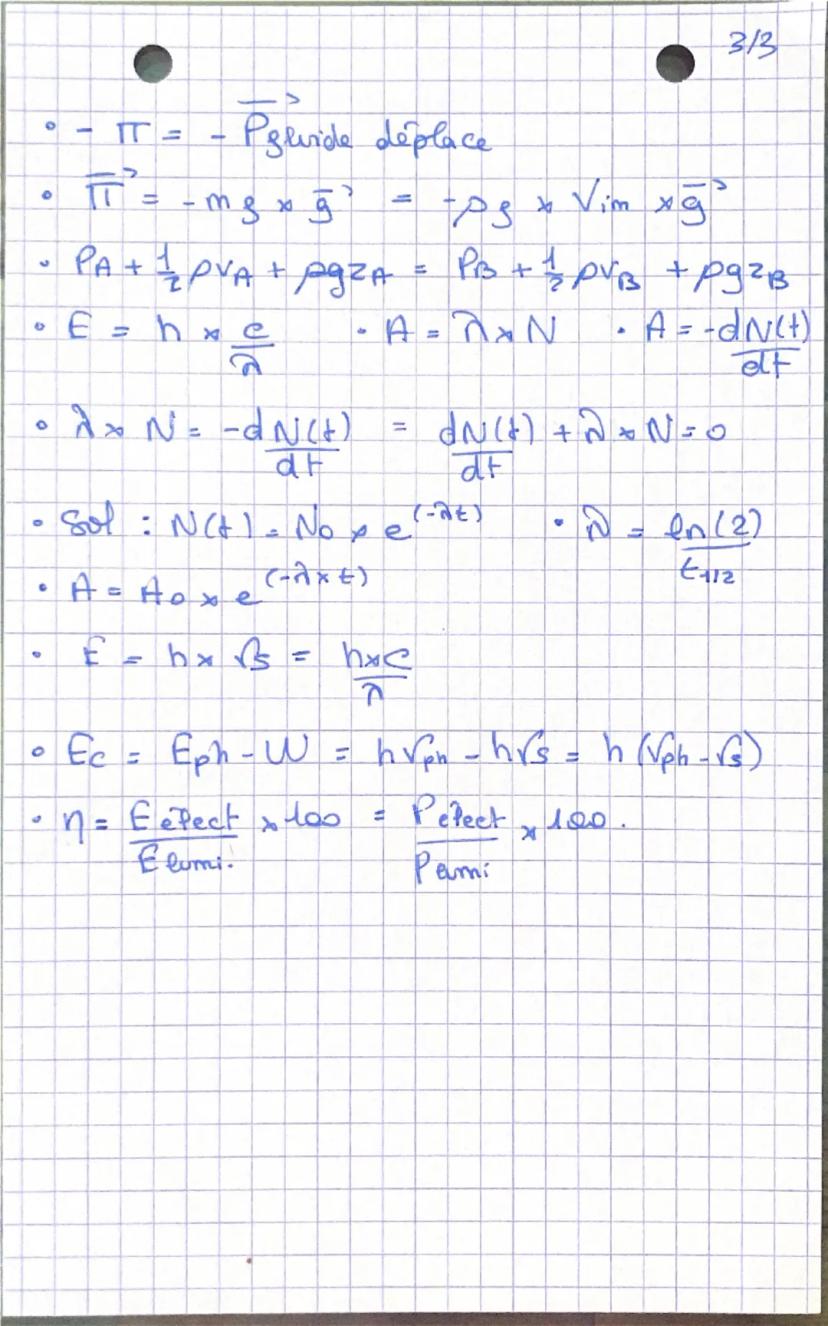 3/3
• - π = - →Pfluide déplace
• →Π = - mf × →g = -ρf × Vim × →g
• PA + 1/2 ρvA + ρgzA = PB + 1/2 ρvB + ρgzB
• E = h × c/λ • A = λ × N • A = -dN(t)/dt
• λ × N = -dN(t)/dt = dN(t)/dt + λ × N = 0
• Sol : N(t) = N0 × e^(-λt) • λ = ln(2)/t1/2
• A = A0 × e^(-λ×t)
• E = h × νs = h×c/λ
• Ec = Eph - W = hνph - hνs = h (νph - νs)
• η = Eélect/Elumi. × 100 = Pélect/Plumi × 100.